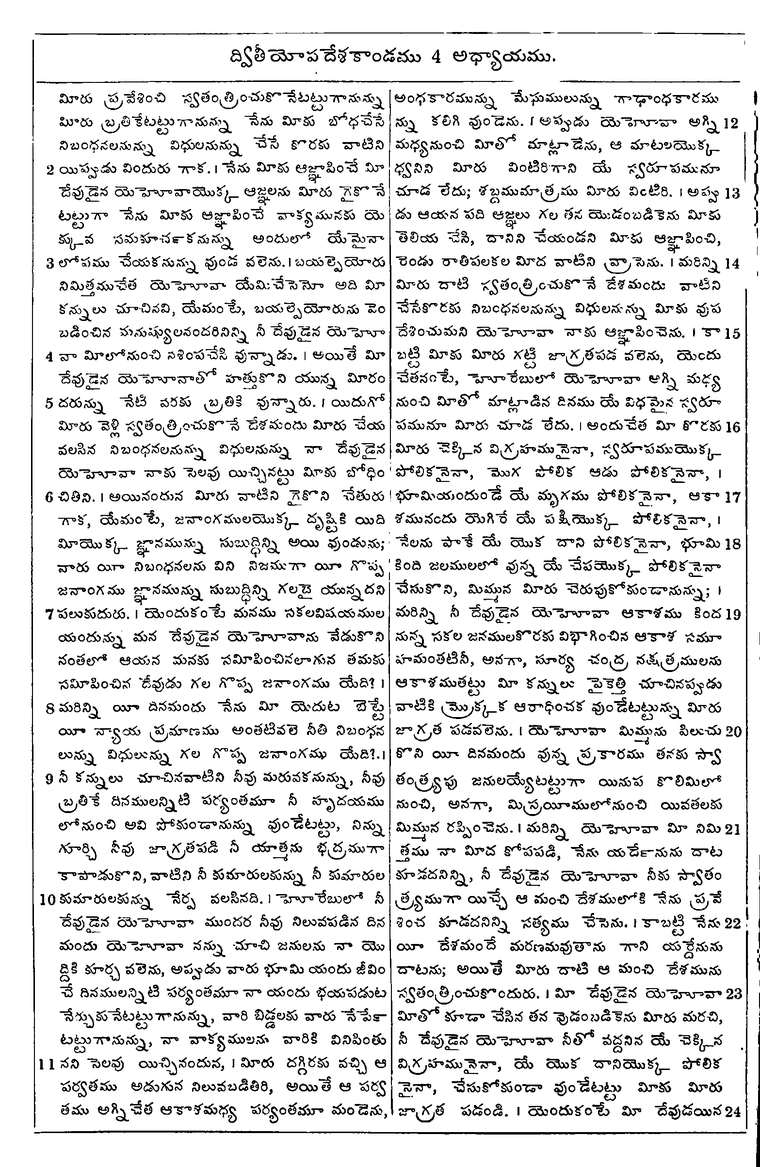 ద్వితీయోపదేశకాండము 4 అధ్యాయము.
మీరు ప్రవేశించి స్వతంత్రించుకొనేటట్టుగానున్ను
మీరు బ్రతికేటట్టుగానున్ను నేను మీకు బోధచేసే
నిబంధనలనున్ను విధులనున్ను చేసే కొరకు వాటిని
2 యిప్పుడు విందురు గాక. । నేను మీకు ఆజ్ఞాపించే మీ
దేవుడైన యెహోవాయొక్క ఆజ్ఞలను మీరు గైకొనే
టట్టుగా నేను మీకు ఆజ్ఞాపించే వాక్యమునకు యె
క్కువ సమకూర్చకనున్ను అందులో యేమైనా
3 లోపము చేయకనున్ను వుండ వలెను. । బయల్పెయోరు
నిమిత్తముచేత యెహోవా యేమిచేసెనో అది మీ
కన్నులు చూచినవి, యేమంటే, బయల్పెయోరును వెం
బడించిన మనుష్యులనందరినిన్ని నీ దేవుడైన యెహో
4 వా మీలోనుంచి నశింపచేసి వున్నాడు. । అయితే మీ
దేవుడైన యెహోవాతో హత్తుకొని యున్న మీరం
5 దరున్ను నేటి వరకు బ్రతికి వున్నారు. । యిదుగో
మీరు వెళ్లి స్వతంత్రించుకొనే దేశమందు మీరు చేయ
వలసిన నిబంధనలనున్ను విధులనున్ను నా దేవుడైన
యెహోవా నాకు సెలవు యిచ్చినట్టు మీకు బోధిం
6 చితిని. । అయినందున మీరు వాటిని గైకొని చేతురు
గాక, యేమంటే, జనాంగములయొక్క దృష్టికి యిది
మీయొక్క జ్ఞానమున్ను సుబుద్ధిన్ని అయి వుండును;
వారు యీ నిబంధనలను విని నిజముగా యీ గొప్ప
జనాంగము జ్ఞానమున్ను సుబుద్ధిన్ని గలదై యున్నదని
7 పలుకుదురు. । యెందుకంటే మనము సకలవిషయముల
యందున్ను మన దేవుడైన యెహోవాను వేడుకొని
నంతలో ఆయన మనకు సమీపించినలాగున తమకు
సమీపించిన దేవుడు గల గొప్ప జనాంగము యేది? ।
8 మరిన్ని యీ దినమందు నేను మీ యెదుట బెట్టే
యీ న్యాయ ప్రమాణము అంతటివలె నీతి నిబంధన
లున్ను విధులున్ను గల గొప్ప జనాంగము యేది?. ।
9 నీ కన్నులు చూచినవాటిని నీవు మరువకనున్ను, నీవు
బ్రతికే దినములన్నిటి పర్యంతమూ నీ హృదయము
లోనుంచి అవి పోకుండానున్ను వుండేటట్టు, నిన్ను
గూర్చి నీవు జాగ్రతపడి నీ యాత్మను భద్రముగా
కాపాడుకొని, వాటిని నీ కుమారులకున్ను నీ కుమారుల
10 కుమారులకున్ను నేర్ప వలసినది. । హోరేబులో నీ
దేవుడైన యెహోవా ముందర నీవు నిలువపడిన దిన
మందు యెహోవా నన్ను చూచి జనులను నా యొ
ద్దికి కూర్చ వలెను, అప్పుడు వారు భూమి యందు జీవిం
చే దినములన్నిటి పర్యంతమూ నా యందు భయపడుట
నేర్చుకునేటట్టుగానున్ను, వారి బిడ్డలకు వారు నేర్పేటి
టట్టుగానున్ను, నా వాక్యములను వారికి వినిపింతు
11 నని సెలవు యిచ్చినందున, । మీరు దగ్గిరకు వచ్చి ఆ
పర్వతము అడుగున నిలువబడితిరి, అయితే ఆ పర్వ
తము అగ్నిచేత ఆకాశమధ్య పర్యంతమూ మండెను,
అంధకారమున్ను మేఘములున్ను గాఢాంధకారము
న్ను కలిగి వుండెను. । అప్పుడు యెహోవా అగ్ని 12
మధ్యనుంచి మీతో మాట్లాడెను, ఆ మాటలయొక్క
ధ్వనిని మీరు వింటిరిగాని యే స్వరూపమునూ
చూడ లేదు; శబ్దముమాత్రము మీరు వింటిరి. । అప్పు 13
డు ఆయన పది ఆజ్ఞలు గల తన యొడంబడికెను మీకు
తెలియ చేసి, దానిని చేయండని మీకు ఆజ్ఞాపించి,
రెండు రాతిపలకల మీద వాటిని వ్రాసెను. । మరిన్ని 14
మీరు దాటి స్వతంత్రించుకొనే దేశమందు వాటిని
చేసేకొరకు నిబంధనలనున్ను విధులనున్ను మీకు వుప
దేశించుమని యెహోవా నాకు ఆజ్ఞాపించెను. । కా 15
బట్టి మీకు మీరు గట్టి జాగ్రతపడ వలెను, యెందు
చేతనంటే, హోరేబులో యెహోవా అగ్ని మధ్య
నుంచి మీతో మాట్లాడిన దినము యే విధమైన స్వరూ
పమునూ మీరు చూడ లేదు. । అందుచేత మీ కొరకు 16
మీరు చెక్కిన విగ్రహమునైనా, స్వరూపముయొక్క
పోలికనైనా, మొగ పోలిక ఆడు పోలికనైనా, ।
భూమియందుండే యే మృగము పోలికనైనా, ఆకా 17
శమునందు యెగిరే యే పక్షియొక్క పోలికనైనా, ।
నేలను పాకే యే యొక దాని పోలికనైనా, భూమి 18
కింది జలములలో వున్న యే చేపయొక్క పోలికనైనా
చేసుకొని, మిమ్మున మీరు చెరుపుకోకుండానున్ను; ।
మరిన్ని నీ దేవుడైన యెహోవా ఆకాశము కింద 19
నున్న సకల జనములకొరకు విభాగించిన ఆకాశ సమూ
హమంతటినీ, అనగా, సూర్య చంద్ర నక్షత్రములను
ఆకాశముతట్టు మీ కన్నులు పైకెత్తి చూచినప్పుడు
వాటికి మ్రొక్కక ఆరాధించక వుండేటట్టున్ను మీరు
జాగ్రత పడవలెను. । యెహోవా మిమ్మును పిలుచు 20
కొని యీ దినమందు వున్న ప్రకారము తనకు స్వా
తంత్ర్యపు జనులయ్యేటట్టుగా యినుప కొలిమిలో
నుంచి, అనగా, మిస్రయీములోనుంచి యివతలకు
మిమ్మున రప్పించెను. । మరిన్ని యెహోవా మీ నిమి 21
త్తము నా మీద కోపపడి, నేను యర్దేనును దాట
కూడదనిన్ని, నీ దేవుడైన యెహోవా నీకు స్వాతం
త్ర్యముగా యిచ్చే ఆ మంచి దేశములోకి నేను ప్రవే
శించ కూడదనిన్ని సత్యము చేసెను. । కాబట్టి నేను 22
యీ దేశమందే మరణమవుతాను గాని యర్దేనును
దాటను; అయితే మీరు దాటి ఆ మంచి దేశమును
స్వతంత్రించుకొందురు. । మీ దేవుడైన యెహోవా 23
మీతో కూడా చేసిన తన వుడంబడికెను మీరు మరచి,
నీ దేవుడైన యెహోవా నీతో వద్దనిన యే చెక్కిన
విగ్రహమునైనా, యే యొక దానియొక్క పోలిక
నైనా, చేసుకోకుండా వుండేటట్టు మీకు మీరు
జాగ్రత పడండి. । యెందుకంటే మీ దేవుడయిన 24